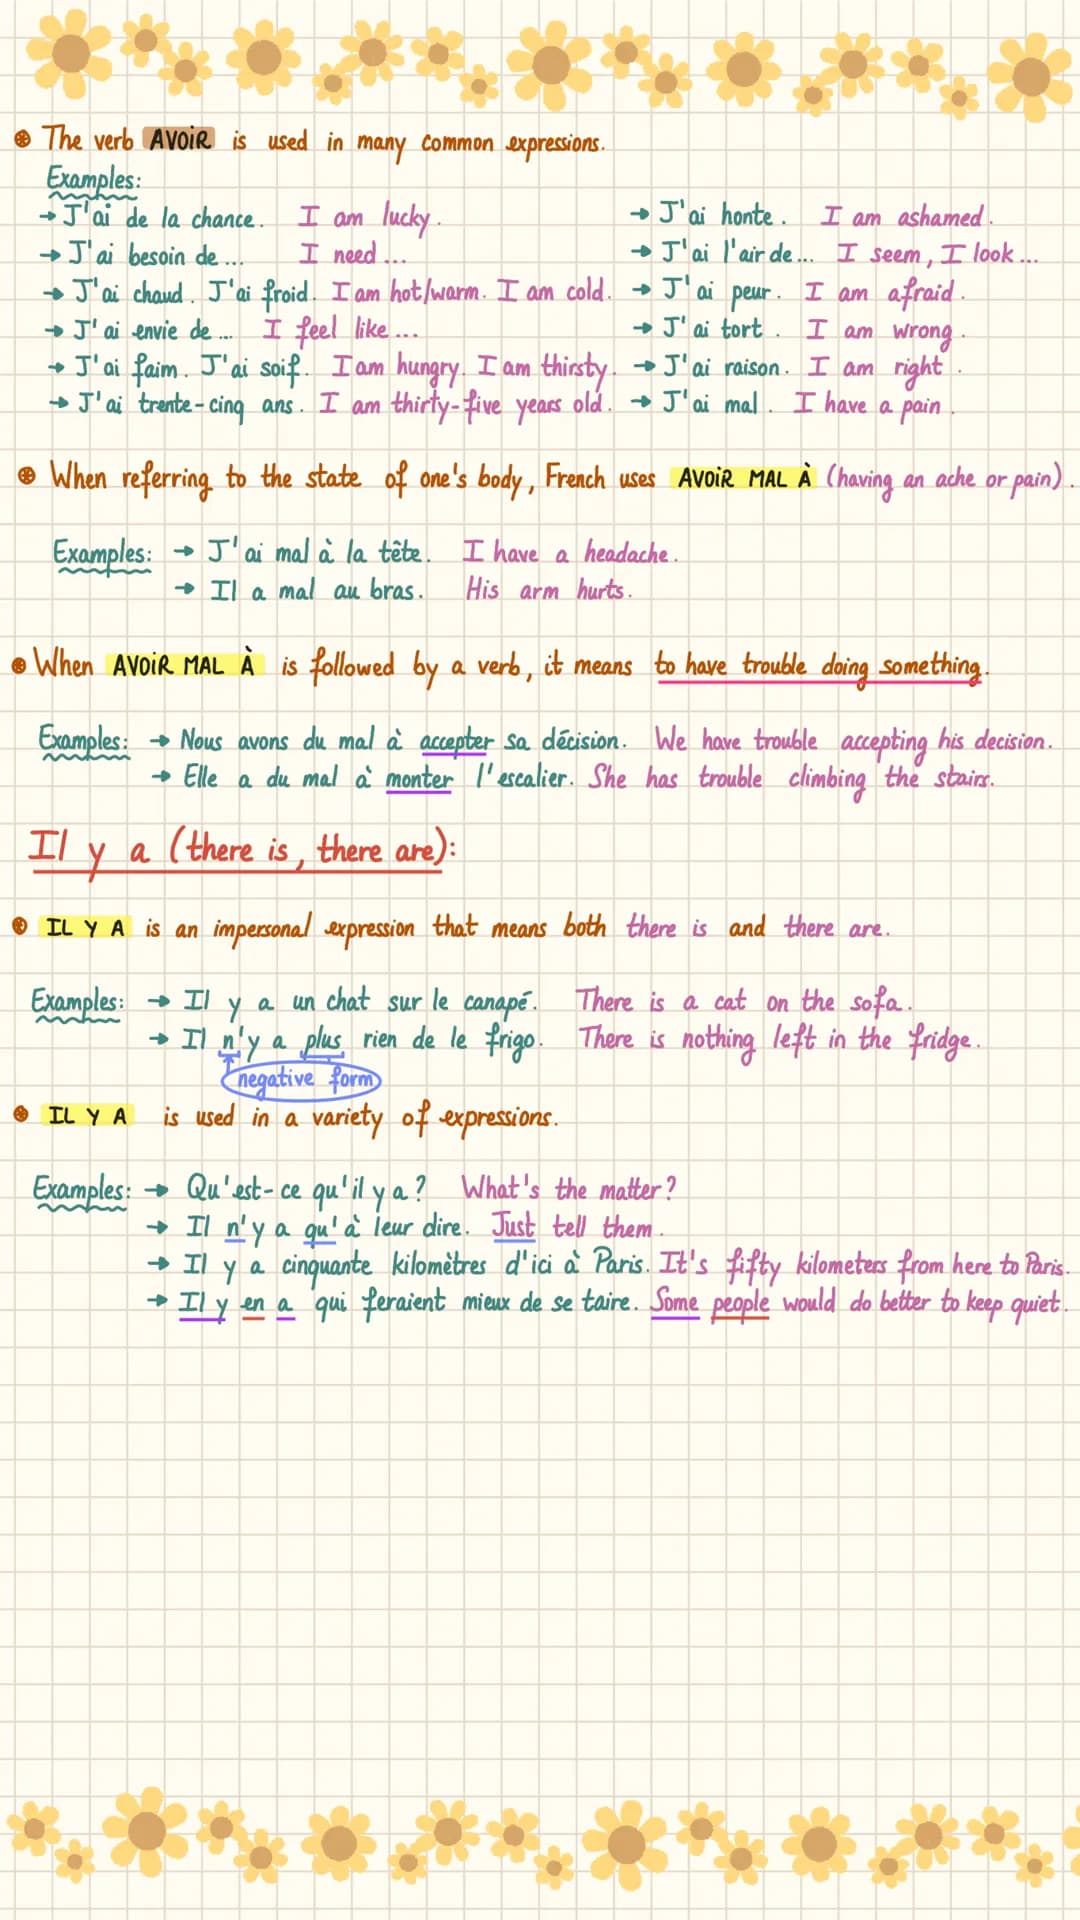 The verb AVOiR is used in many common expressions.
Examples:
→ J'ai de la chance. I am lucky.
→ J'ai besoin de... I need...
→ J'ai chaud. J'ai froid. I am hot/warm. I am cold.
→ J'ai envie de... I feel like...
→ J'ai faim. J'ai soif. I am hungry. I am thirsty.
→ J'ai trente-cinq ans. I am thirty-five years old.
→ J'ai honte. I am ashamed.
→ J'ai l'air de... I seem, I look...
→ J'ai peur. I am afraid.
→ J'ai tort. I am wrong.
→ J'ai raison. I am right.
→ J'ai mal. I have a pain.
When referring to the state of one's body, French uses AVOiR MAL À (having an ache or pain).
Examples: → J'ai mal à la tête. I have a headache.
→ Il a mal au bras. His arm hurts.
When AVOiR MAL À is followed by a verb, it means to have trouble doing something.
Examples: → Nous avons du mal à accepter sa décision. We have trouble accepting his decision.
→ Elle a du mal à monter l'escalier. She has trouble climbing the stairs.
Il y a (there is, there are):
IL Y A is an impersonal expression that means both there is and there are.
Examples: → Il y a un chat sur le canapé. There is a cat on the sofa.
→ Il n'y a plus rien de le frigo. There is nothing left in the fridge.
negative form
IL Y A is used in a variety of expressions.
Examples: → Qu'est-ce qu'il y a? What's the matter?
→ Il n'y a qu'à leur dire. Just tell them.
→ Il y a cinquante kilomètres d'ici à Paris. It's fifty kilometers from here to Paris.
→ Il y en a qui feraient mieux de se taire. Some people would do better to keep quiet.